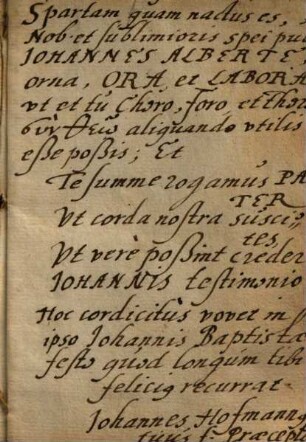 Spartam quam nactus es,
Nob. et sublimioris spei pu
JOHANNES ALBERTE,
orna, ORA, et LABORA
vt et tu Choro, foro, et thoro
σὺν Θεῷ aliquando vtilis
esse poßis; Et
Te summe rogamus PA
TER
Vt corda nostra susci„
tes
Vt verè poßint creder
JOHANNIS testimonio
Hoc cordicitùs vovet in
ipso Johannis Baptistæ
festo quod longùm tibi
felicia recurrat
Johannes Hofmann
tuus Præcept